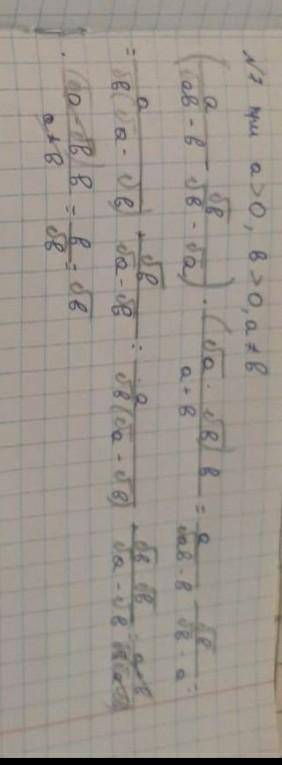 N1 при a > 0, b > 0, a ≠ b
(a/(√ab - b) - √b/(√b - √a)) · (√a · √b) b/(a + b) = a/(√ab · b) - √b/(√b · a) =
= a/(√b(√a - √b)) + √b/(√a - √b) = a/(√b(√a - √b)) + √b √b/(√a - √b) = a+b
· (√a - √b) b/(a + b) = b/√b = √b